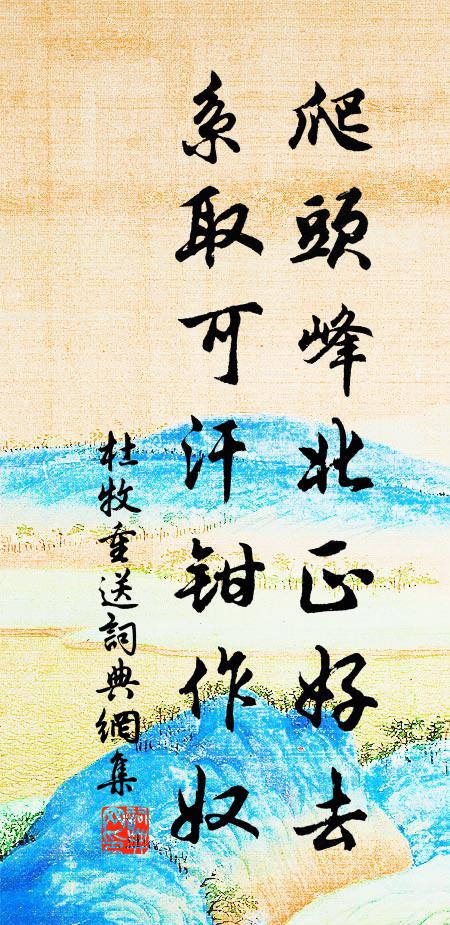 爬頭峰北正好去
系取可汗鉗作奴
杜牧重送詞典網集